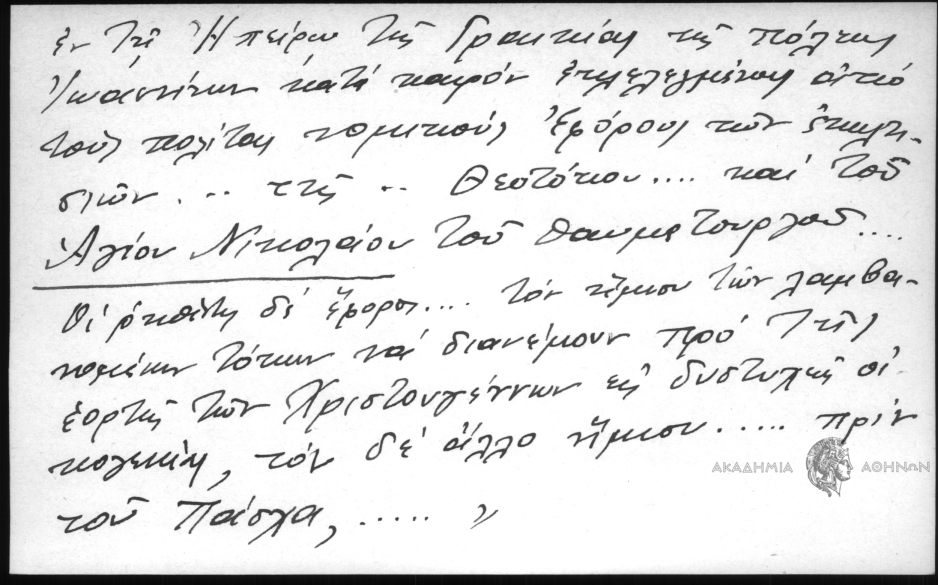 ἐν τῇ Ἠπείρῳ τῆς Γραικίας τῆς πόλεως
Ἰωαννίνων κατά καιρόν ἐπιλελεγμένους ἀπό
τούς πολίτας νομικούς Ἐφόρους τῶν ἐκκλη-
σιῶν ... τῆς .. Θεοτόκου.... καί τοῦ
Ἁγίου Νικολάου τοῦ θαυματουργοῦ....
Οἱ ῥηθέντες δέ ἔφοροι.... τόν ἥμισυ τῶν λαμβα-
νομένων τόκων νά διανέμουν πρό τῆς
ἑορτῆς τῶν Χριστουγέννων εἰς δυστυχεῖς οἰ-
κογενείας, τόν δέ ἄλλο ἥμισυ ..... πρίν
τοῦ Πάσχα, ..... »
ΑΚΑΔΗΜΙΑ ΑΘΗΝΩΝ